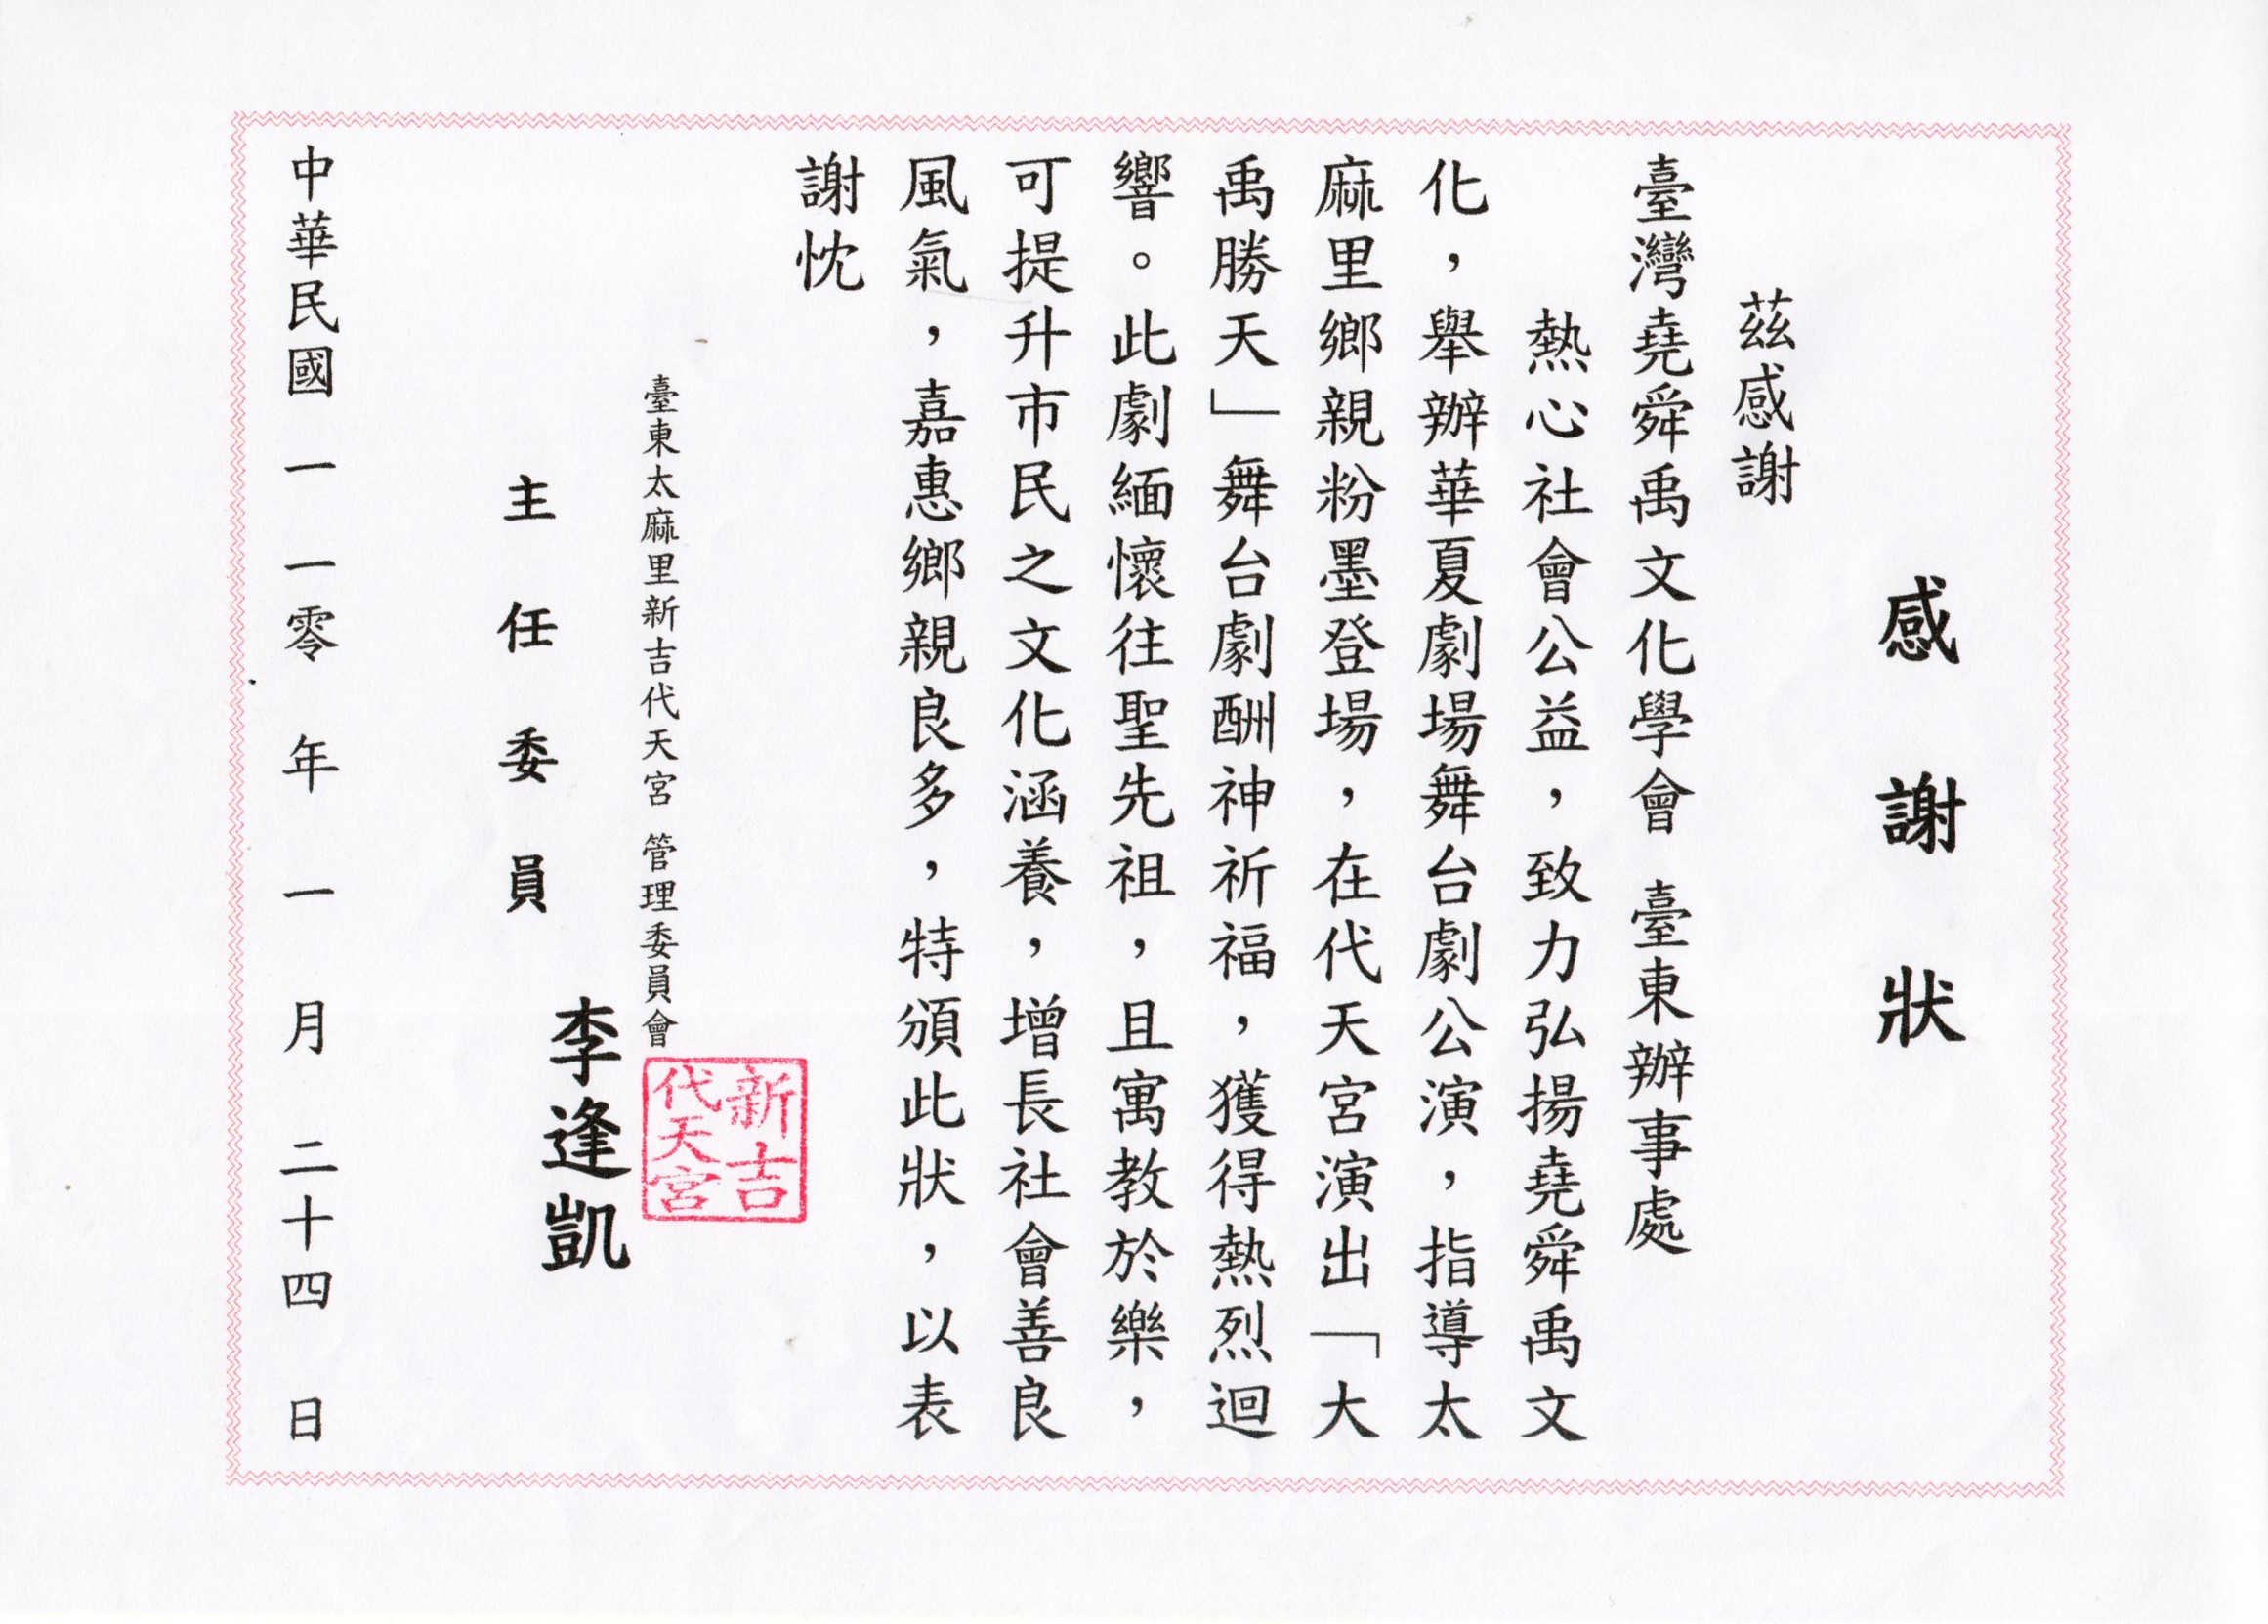 感謝狀
茲感謝
臺灣堯舜禹文化學會 臺東辦事處
熱心社會公益，致力弘揚堯舜禹文
化，舉辦華夏劇場舞台劇公演，指導太
麻里鄉親粉墨登場，在代天宮演出「大
禹勝天」舞台劇酬神祈福，獲得熱烈迴
響。此劇緬懷往聖先祖，且寓教於樂，
可提升市民之文化涵養，增長社會善良
風氣，嘉惠鄉親良多，特頒此狀，以表
謝忱
臺東太麻里新吉代天宮 管理委員會
新吉
代天宮
主任委員 李逢凱
中華民國一一零年一月二十四日